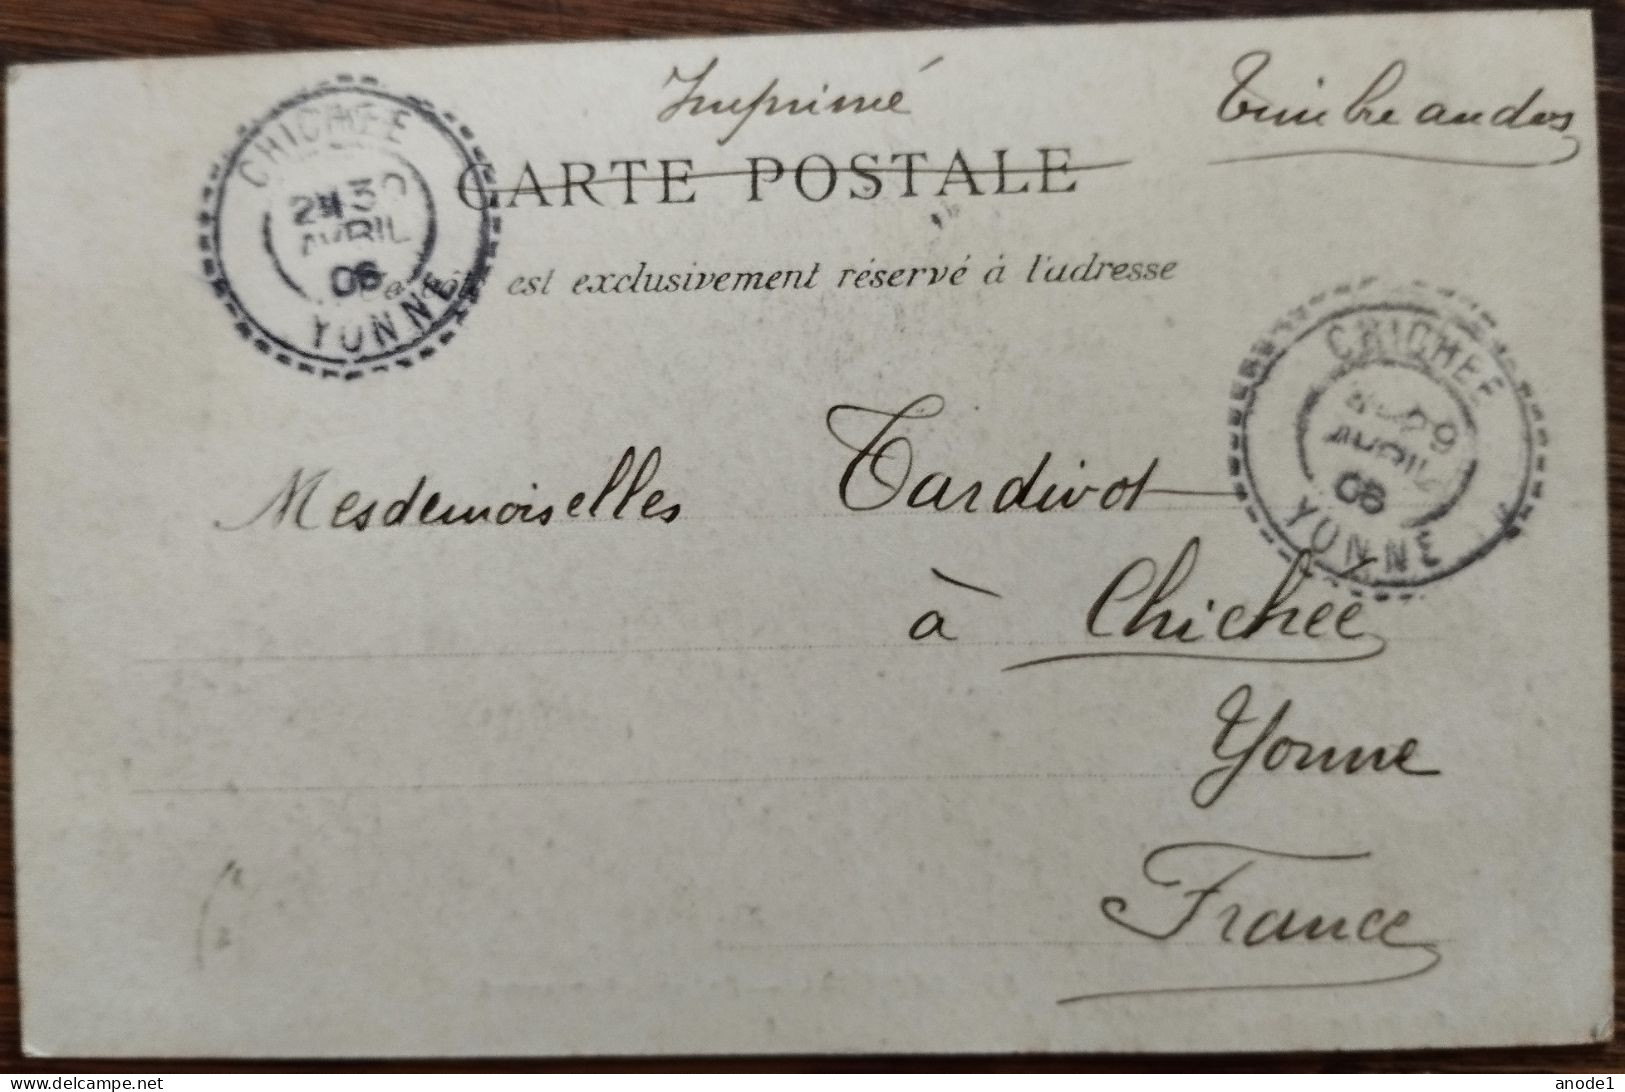 Imprimé
Timbre au dos
CARTE POSTALE
est exclusivement réservé à l'adresse
CHICHEE
30
AVRIL
06
YONNE
CHICHEE
AVRIL
06
YONNE
Mesdemoiselles Tardivot
à Chichée
Yonne
France
delcampe.net
anode1